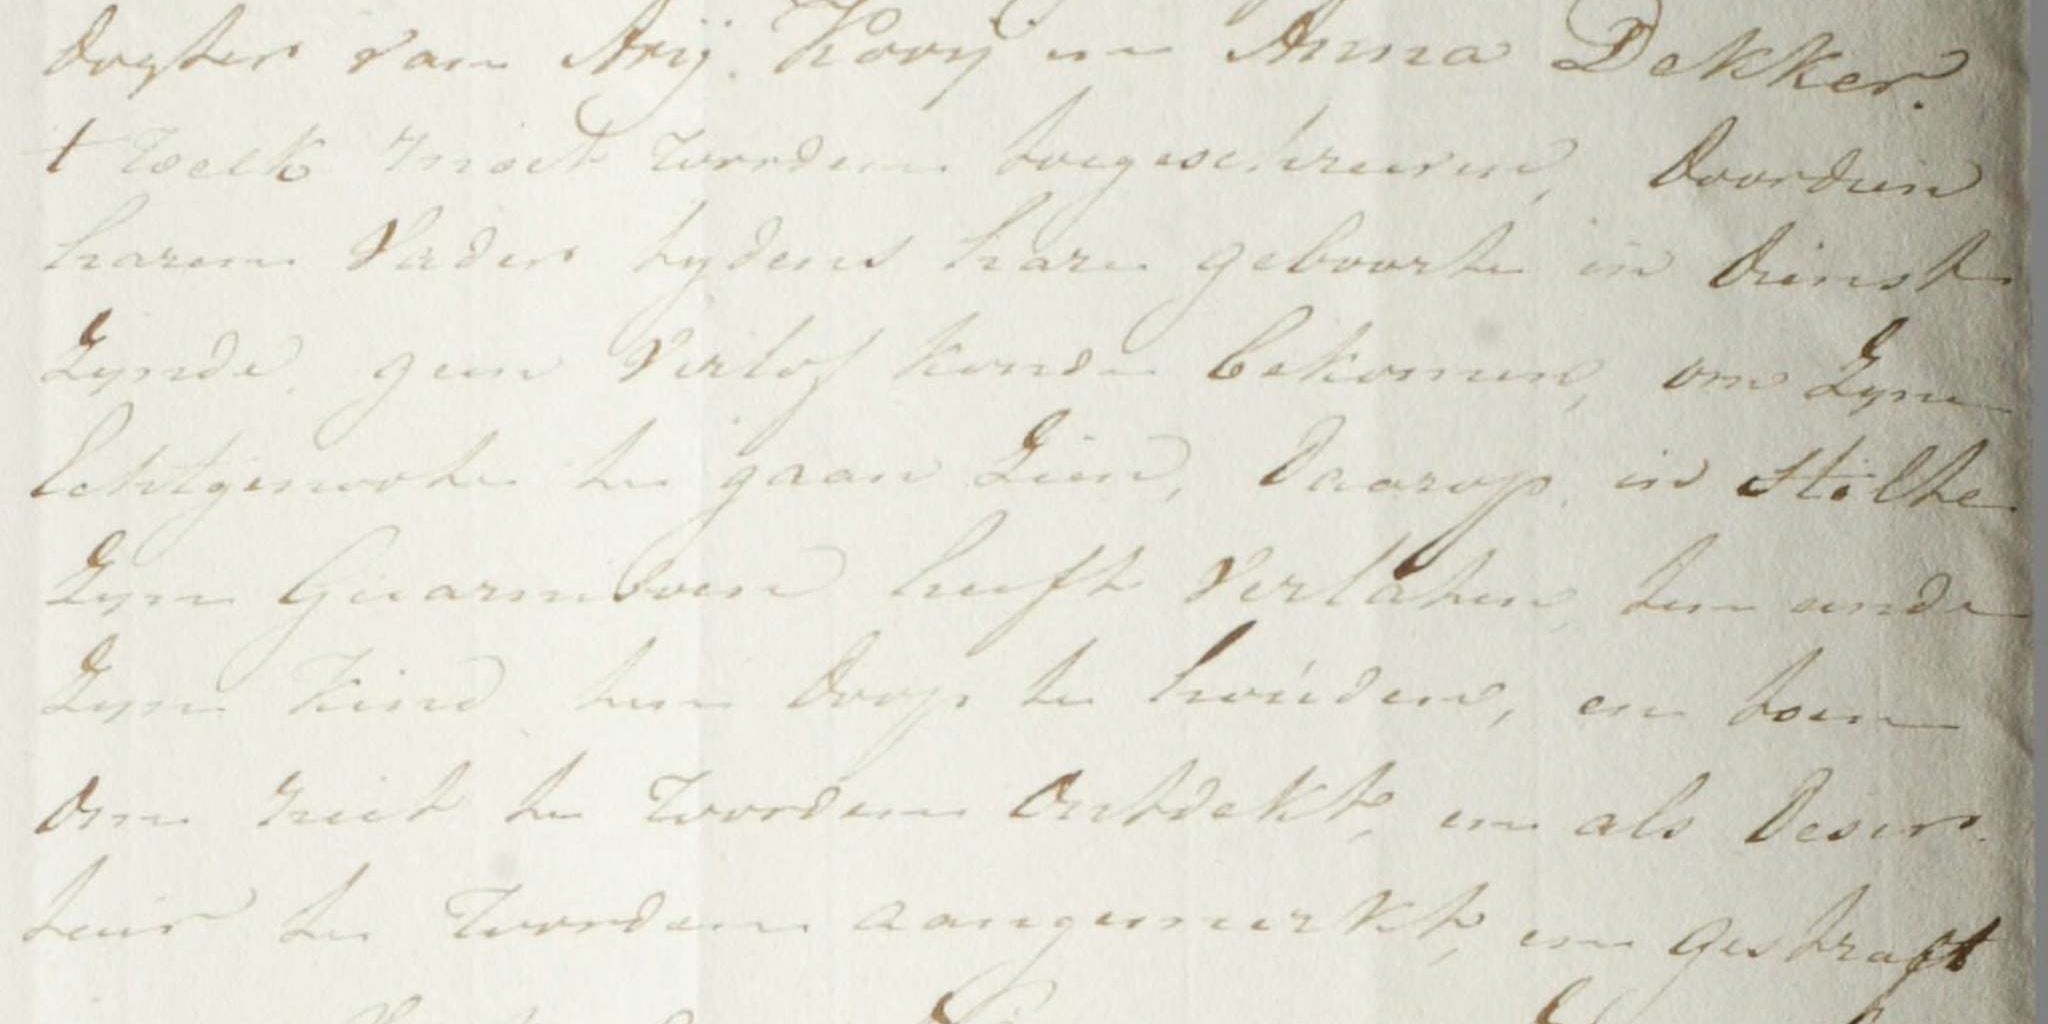 dogter van Arij Kooij en Anna Dekker.
t welk moet worden toegeschreeven, doordien
haren Vader tydens hare geboorte in dienst
Zynde, geen Verlof konde bekomen, om Zyne
Echtgenoote te gaan Zien, daarop in stilte
Zyn Guarnisoen heeft Verlaten, ten einde
Zyn Kind ten doop te houden, en toen
om niet te worden Ontdekt, en als Deser-
teur te worden aangemerkt, en gestraft